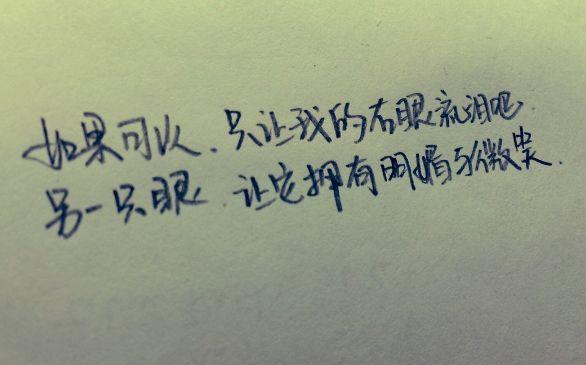 如果可以、只让我的右眼流泪吧.
另一只眼.让它拥有明媚与微笑.